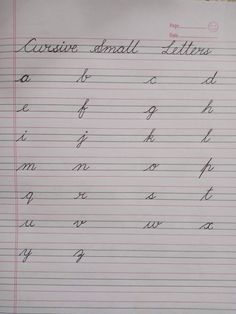 Page
Date
Cursive Small Letters
a b c d
e f g h
i j k l
m n o p
q r s t
u v w x
y z